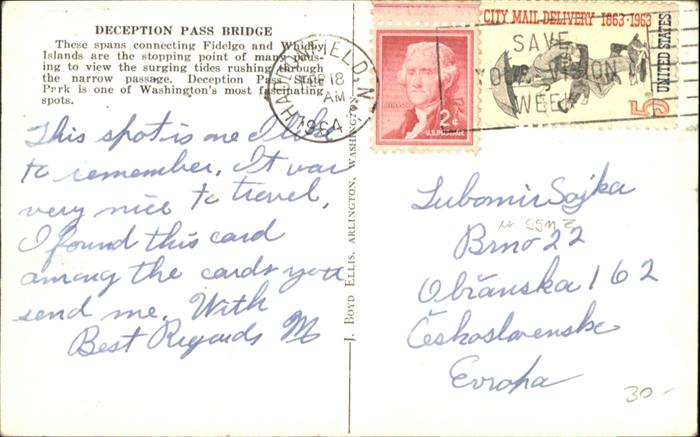 DECEPTION PASS BRIDGE
These spans connecting Fidelgo and Whidby
Islands are the stopping point of many paus-
ing to view the surging tides pushing through
the narrow passage. Deception Pass State
Park is one of Washington's most fascinating
spots.
This spot is one I like
to remember. It was
very nice to travel.
I found this card
among the cards you
send me. With
Best Regards M
J. BOYD ELLIS, ARLINGTON, WASHINGTON
18
AM
1964
2¢
U.S. POSTAGE
CITY MAIL DELIVERY 1863·1963
UNITED STATES
5
SAVE
YOUR VISION
WEEK
Lubomir Sojka
Brno 22
Obřanska 162
Československe
Evropa
30-